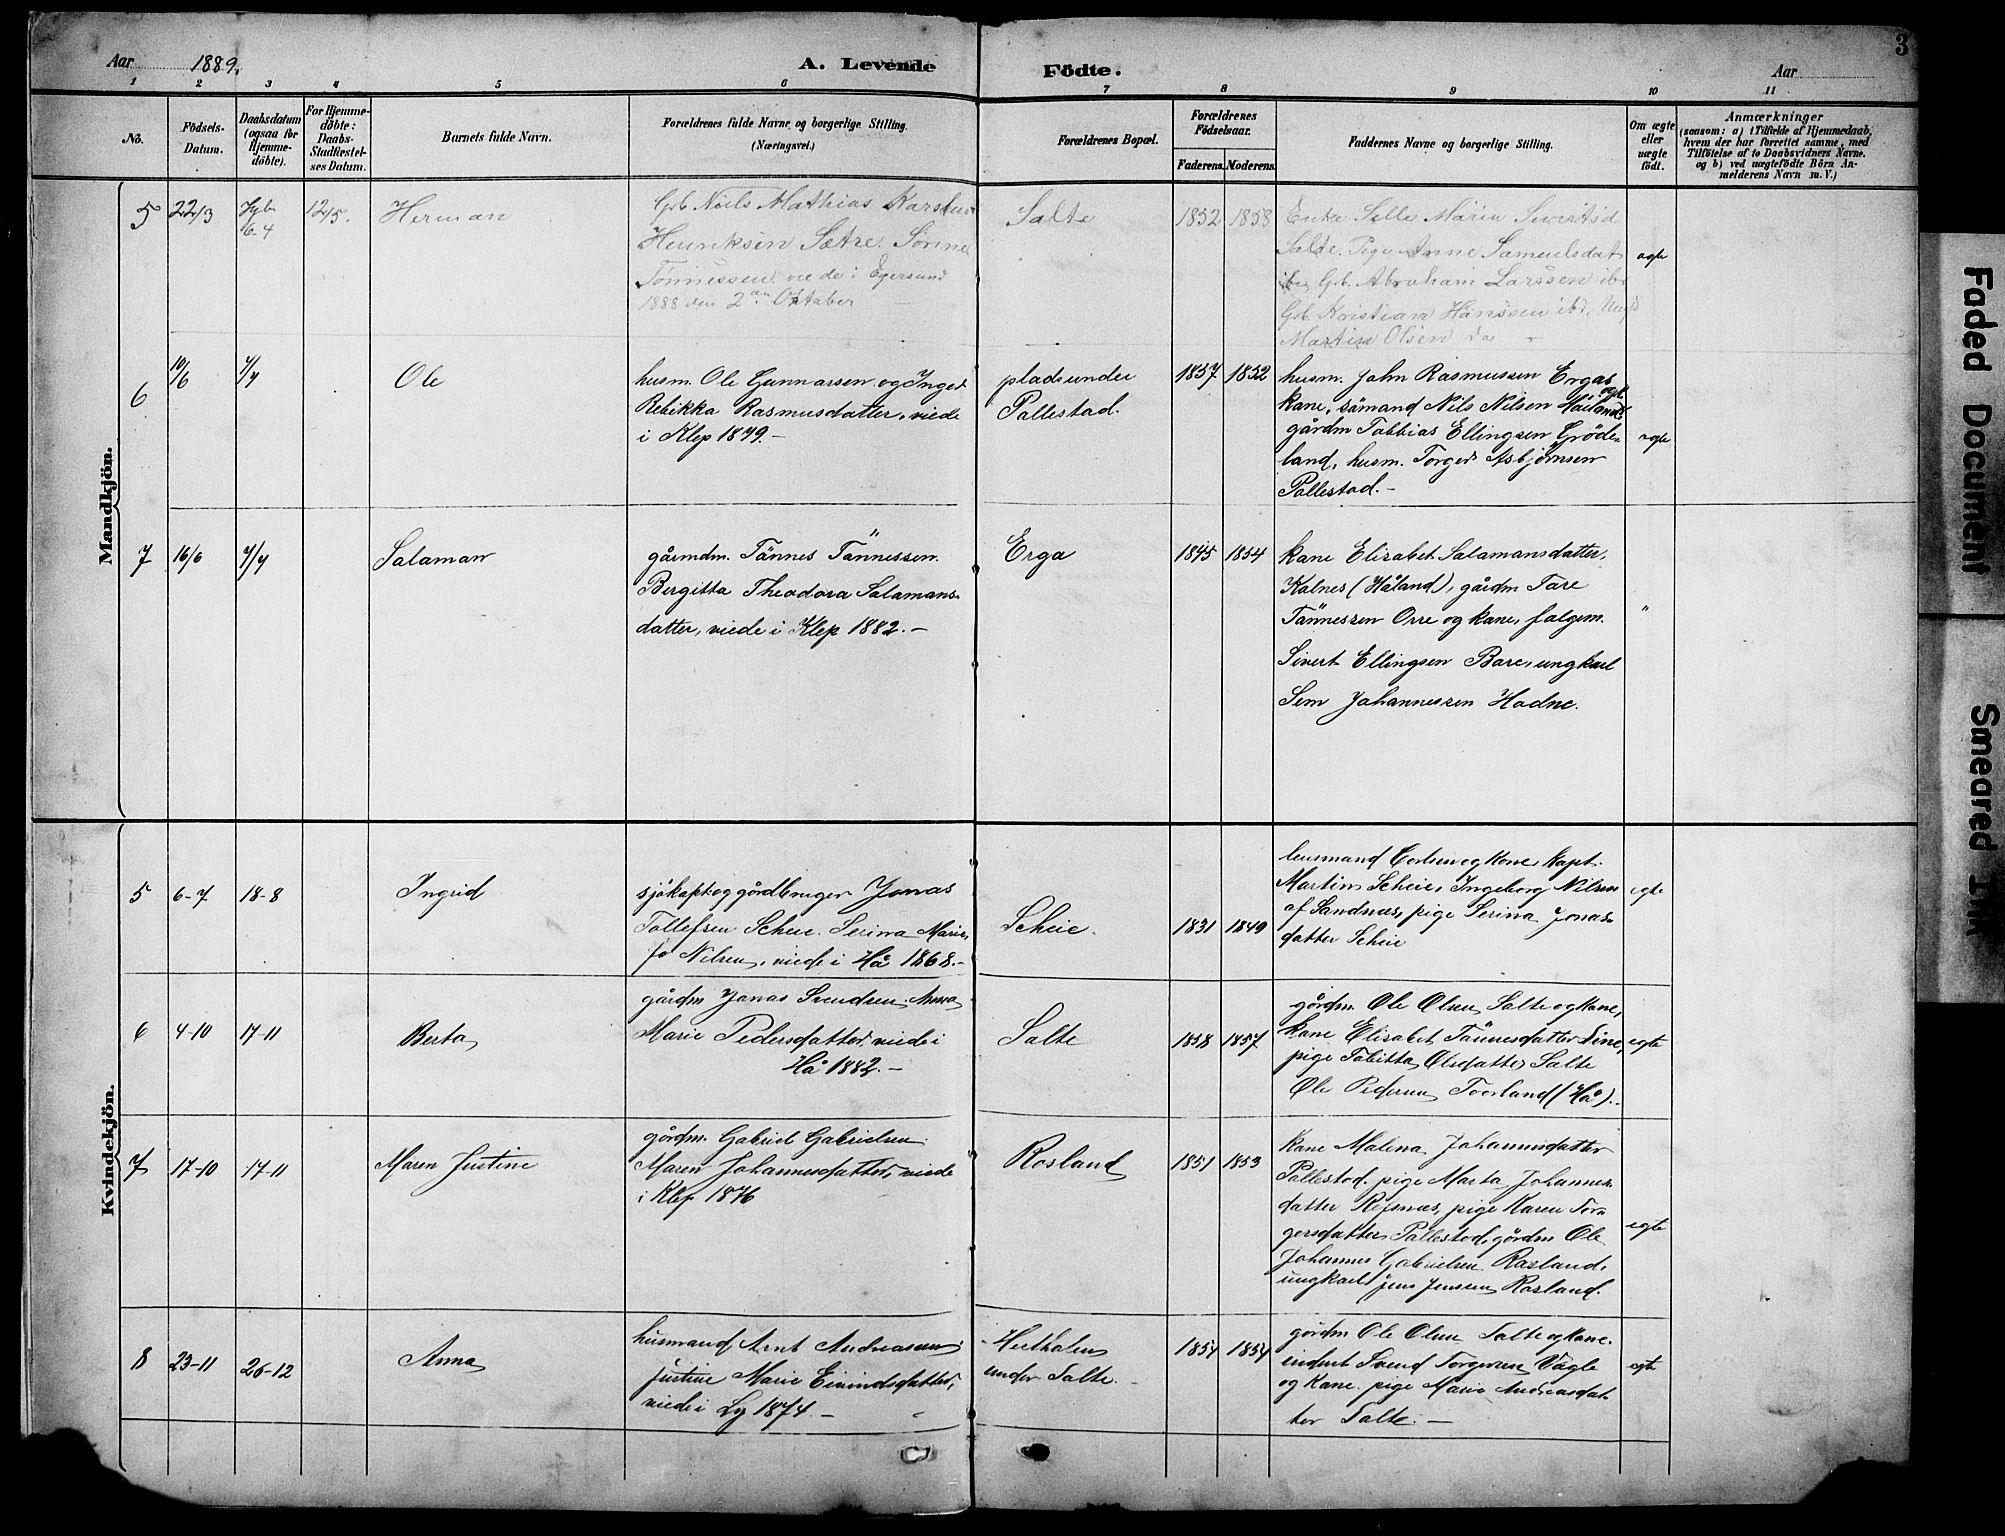 Aar 1889.
A. Levende Födte.
Aar
3
1 2 3 4 5 6 7 8 9 10 11
No.
Födsels-Datum.
Daabsdatum (ogsaa for Hjemme-döbte).
For Hjemme-döbte: Daabs-Stadfæstel-ses Datum.
Barnets fulde Navn.
Forældrenes fulde Navne og borgerlige Stilling.
(Næringsvei.)
Forældrenes Bopæl.
Forældrenes Födselsaar.
Faderens. Moderens.
Faddernes Navne og borgerlige Stilling.
Om ægte eller uægte födt.
Anmærkninger
(saasom: a) i Tilfælde af Hjemmedaab,
hvem der har forrettet samme, med
Tilföielse af to Daabsvidners Navne,
og b) ved uægtefödte Börn An-
melderens Navn m. V.)
Mandkjön.
5 22/3 6-4 12/5. Herman
Grb. Niels Mathias Karsten
Henriksen Sætre. Sørine
Tönnessen, viede i Egersund
1888 den 2den Oktober
Salte 1852 1858
Enke Salte Maria Sivertsd
Salte. Pige Anne Samuelsdat
ibd Grb. Abraham Larssen ibd
Grb. Kristian Hanssen ibd, Ungk
Martin Olsen
ægte
6 10/6 7/7 Ole
husm. Ole Gunnarsen og Inger
Rebikka Rasmusdatter, viede
i Klep 1879.-
plads under
Pallestad.
1857 1852
husm. John Rasmussen Erga og
kone, sömand Nils Nilsen Håland
gårdm Tobbias Ellingsen Gröde-
land, husm. Torger Asbjörnsen
Pallestad.-
ægte
7 16/6 7/7 Salamon
gårmdm. Tönnes Tönnessen.
Bergitta Theodora Salamons-
datter, viede i Klep 1882.-
Erga 1845 1854
kone Elisabet Salamonsdatter,
Kalnes (Håland), gårdm Tore
Tönnessen Orre og kone, folgem.
Sivert Ellingsen Bore, ungkarl
Sem Johannessen Hodne.
"
Kvindekjön.
5 6-7 18-8 Ingrid
sjökapt og gårdbruger Jonas
Tollefsen Scheie. Serina Marie
Jo Nilsen, viede i Hå 1868.-
Scheie. 1831 1849
lensmand og Kone, Kapt.
Martin Scheie, Ingeborg Nilsen
af Sandnæs, pige Serina Jonas-
datter Scheie
egte
6 4-10 17-11 Berta
gårdm Jonas Svendsen, Anna
Marie Pedersdatter, viede i
Hå 1882.-
Salte 1858 1857
gårdm. Ole Olsen Salte og kone,
kone Elisabet Tönnesdatter
pige Tabitta Olsdatter Salte
Ole Pedersen Tverland (Hå).
egte
7 17-10 17-11 Maren Justine
gårdm. Gabriel Gabrielsen
Maren Johannesdatter, viede
i Klep 1876
Rosland 1851 1853
kone Malena Johannesdatter
Pallestod. pige Marta Johannes-
datter Refsnæs, pige Karen Tor-
gersdatter Pallestod, gårdm Ole
Johannes Gabrielsen Rosland,
ungkarl Jens Jensen Rosland.
egte
8 23-11 26-12 Anna
husmand Arnt Andreassen
Justine Marie Eivindsdatter,
viede i Ly 1874.-
under Salte.
1854 1854
gårdm Ole Olsen Salte og kone.
inderst Svend Torgersen Vagle
og Kone. pige Marie Andreasdat
ter Salte.-
egte
Faded Document
Smeared Ink